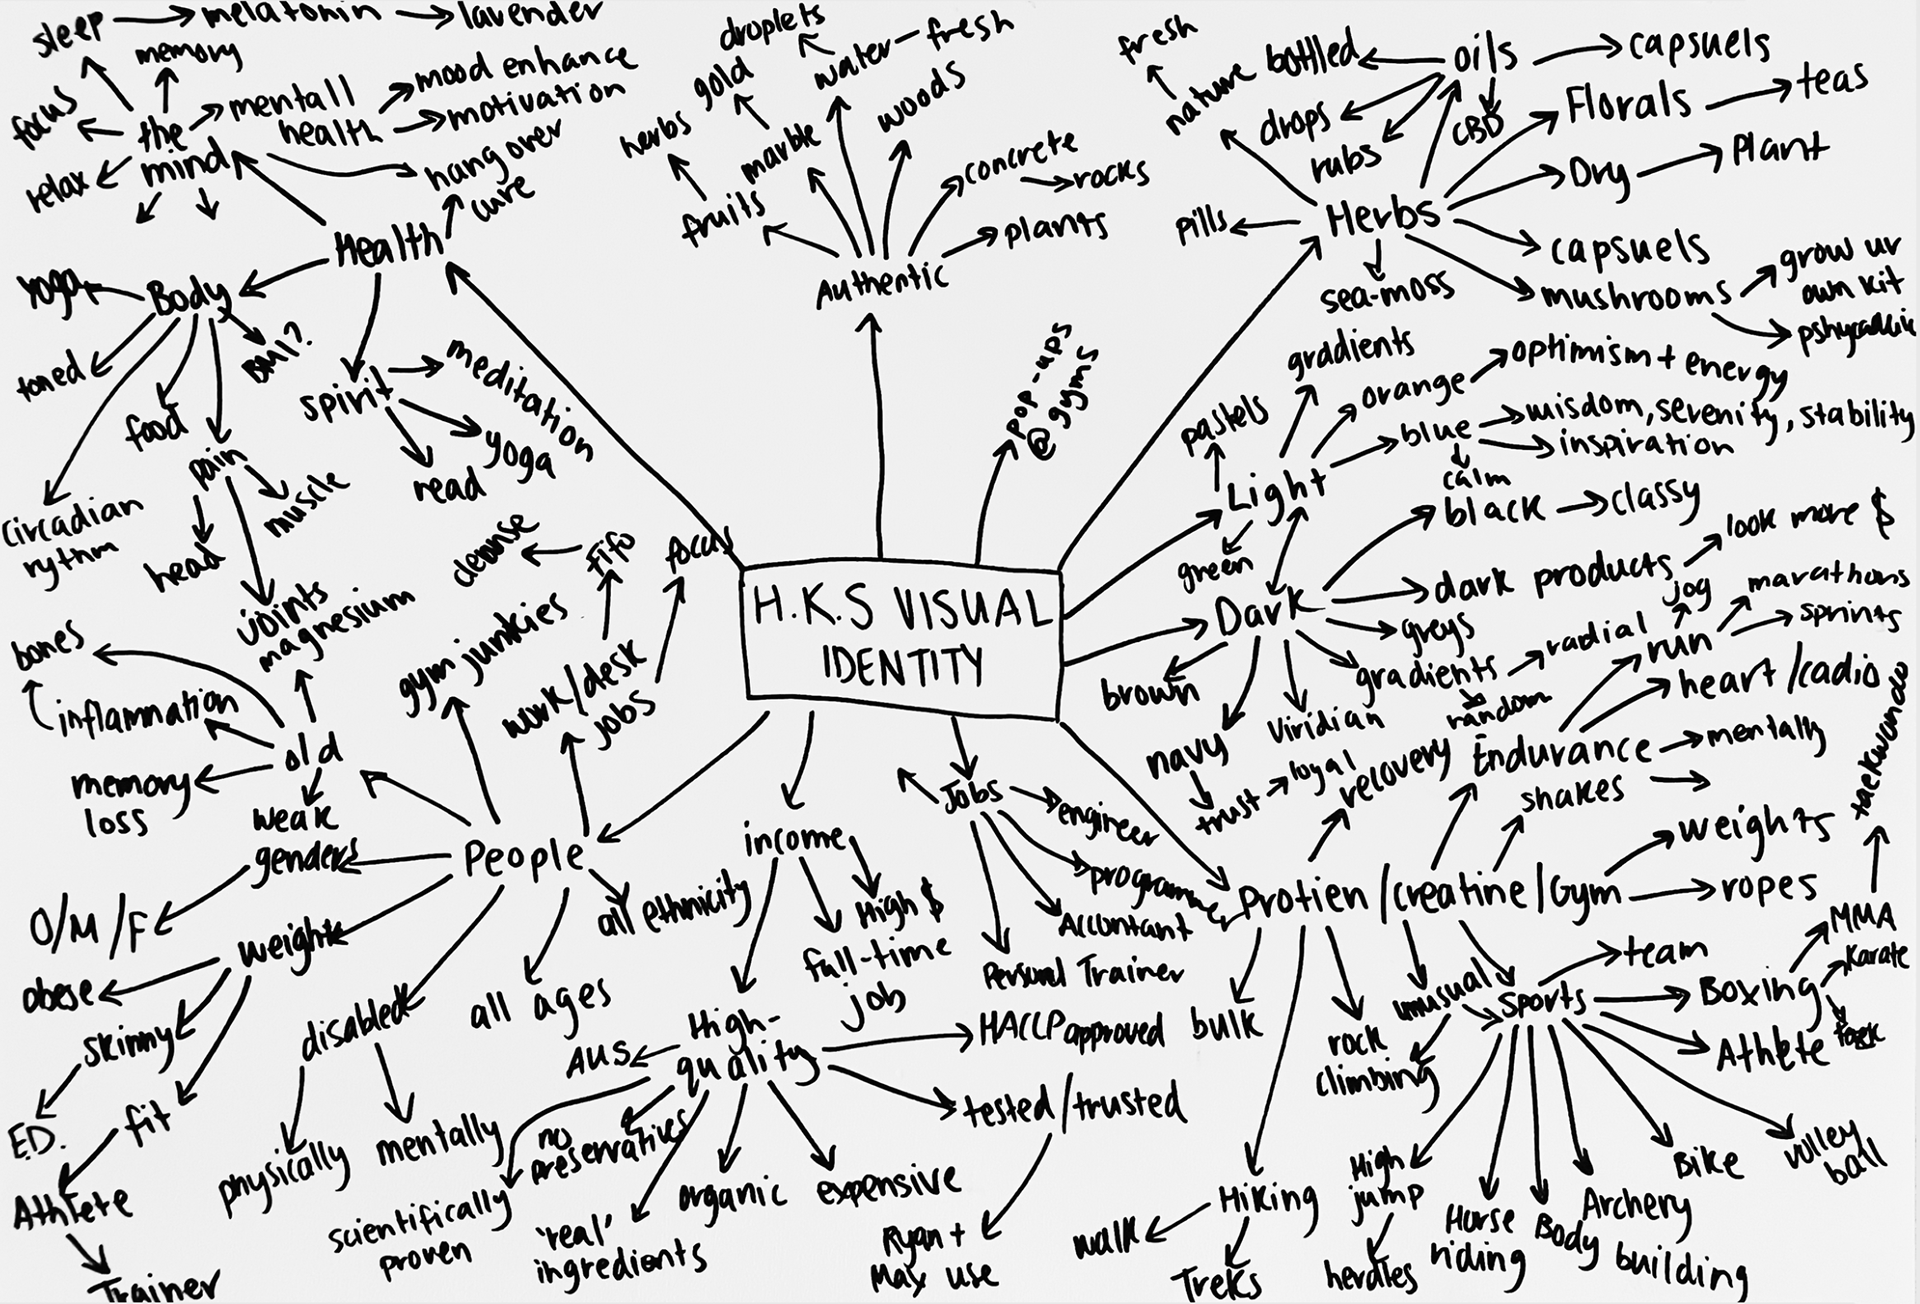 sleep
melatonin
lavender
memory
focus
the
mind
relax
mentall
health
mood enhance
motivation
hang over
cure
Health
yoga
Body
toned
food
BMI?
pain
head
muscle
joints
circadian
rythm
spirit
meditation
yoga
read
droplets
water
fresh
gold
herbs
marble
woods
fruits
concrete
rocks
plants
Authentic
pop-ups
@ gyms
fresh
nature
bottled
oils
capsuels
drops
rubs
CBD
Florals
teas
Dry
Plant
pills
Herbs
capsuels
sea-moss
mushrooms
grow ur
own kit
gradients
pastels
orange
optimism + energy
blue
wisdom, serenity, stability
inspiration
calm
Light
green
black
classy
Dark
dark products
look more $
greys
gradients
radial
random
brown
navy
viridian
trust
loyal
H.K.S VISUAL
IDENTITY
focus
fifo
cleanse
gym junkies
work/desk
jobs
magnesium
bones
inflammation
old
memory
loss
weak
People
genders
O/M/F
weight
obese
skinny
ED.
fit
Athlete
Trainer
disabled
physically
mentally
all ages
all ethnicity
income
High $
full-time
job
High-
quality
AUS
no
preservatives
scientifically
proven
'real'
ingredients
organic
expensive
HACCP approved
tested/trusted
Ryan +
Max use
Jobs
engineer
programmer
Accontant
Personal Trainer
Protien/creatine/Gym
recovery
Endurance
run
jog
marathons
sprints
heart/cadio
mentally
shakes
weights
ropes
taekwondo
MMA
karate
Boxing
team
Athlete
unusual
sports
bulk
rock
climbing
Hiking
walk
Treks
High
jump
herdles
Horse
riding
Body building
Archery
Bike
volley
ball